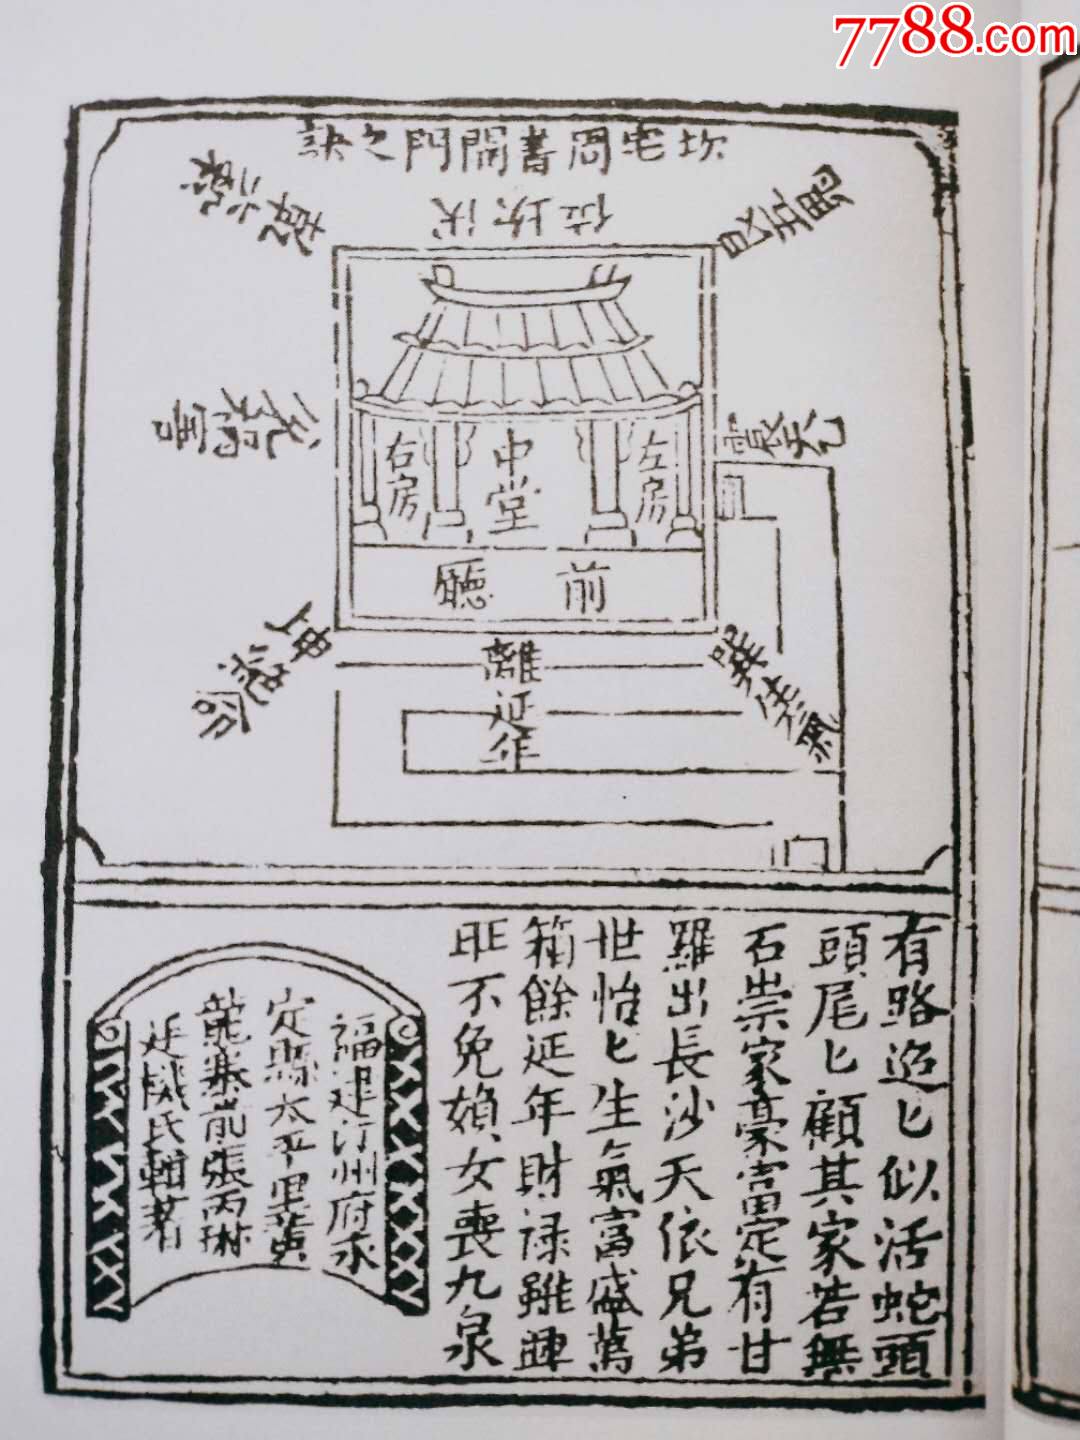 7788.com
坎宅周書開門之訣
伏坎位
乾六煞
艮五鬼
兌禍害
震天乙
右房
中堂
左房
前廳
坤絕命
離延年
巽生氣
有路迢匕似活蛇頭
頭尾匕顧其家若無
石崇家豪富定有甘
羅出長沙天依兄弟
世怡匕生氣富盛萬
箱餘延年財禄雖興
旺不免媍女喪九泉
福建汀州府永
定縣太平里黄
龍寨前張丙琳
廷機氏輯著